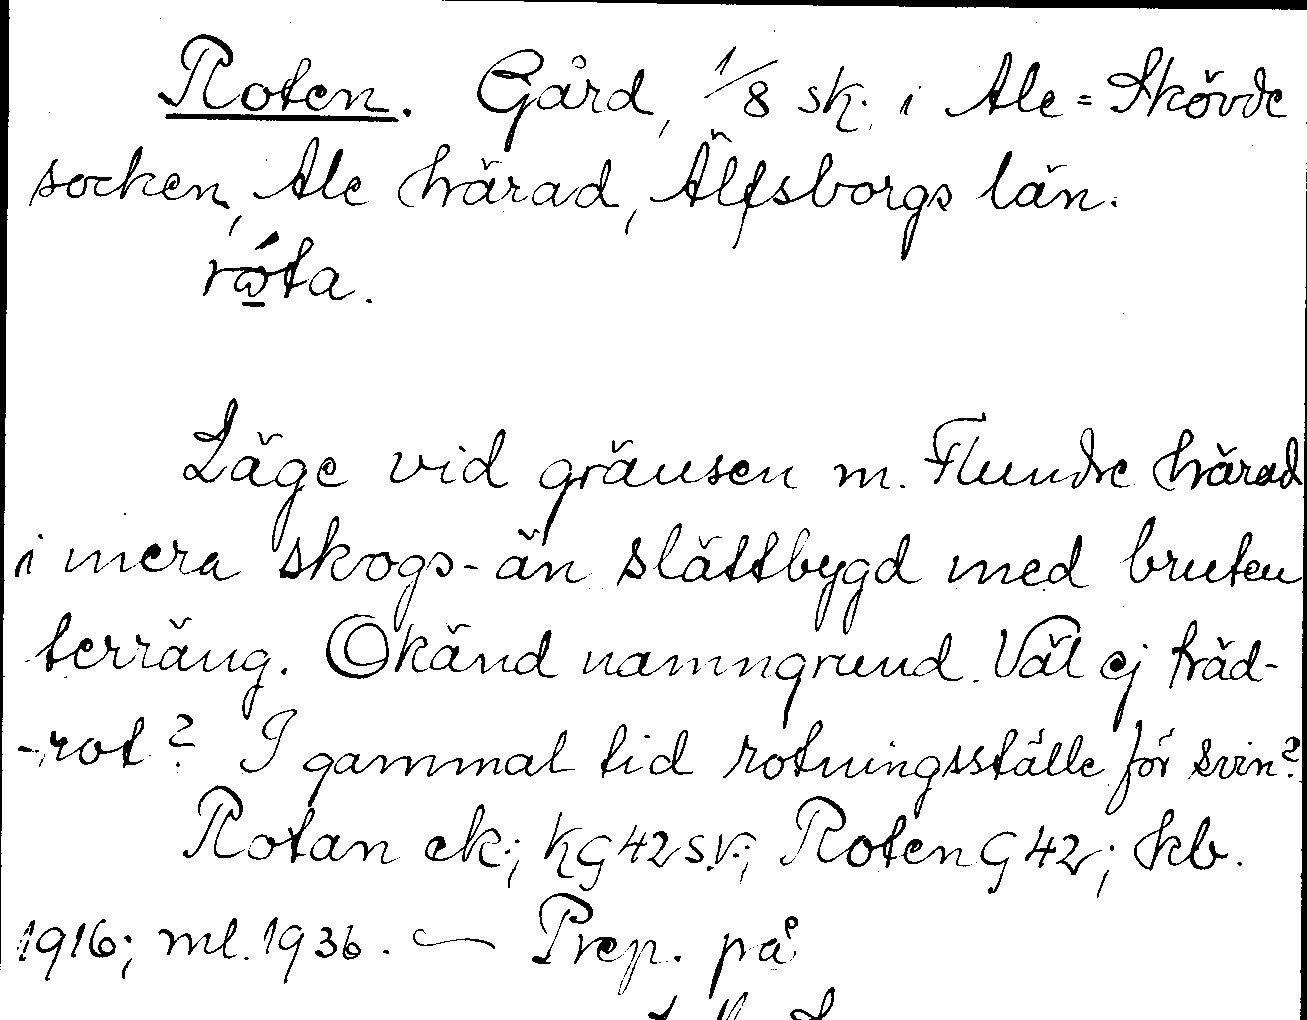 Roten. Gård, 1/8 sk. i Ale=Skövde
socken, Ale härad, Älfsborgs län.
Läge vid gränsen m. Flundre härad
i mera skogs- än slättbygd med bruten
terräng. Okänd namngrund. Väl ej träd-
-rot? I gammal tid rotningsställe för svin?
Rotan ek; KG42SV; Roten G42; kb.
1916; ml. 1936. — Prep. på